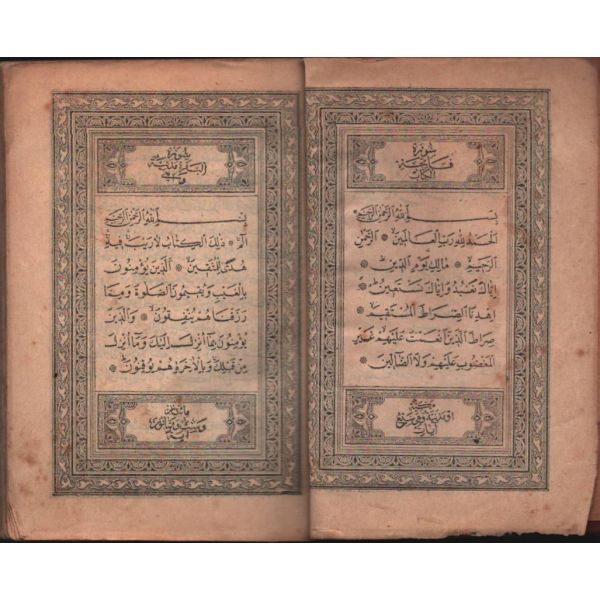 سورة
فاتحة
الكتاب
بسم الله الرحمن الرحيم
الحمد لله رب العالمين الرحمن
الرحيم مالك يوم الدين
إياك نعبد وإياك نستعين
اهدنا الصراط المستقيم
صراط الذين أنعمت عليهم غير
المغضوب عليهم ولا الضالين
مكية
او مدنية وهي سبع
آيات
سورة
البقرة مدنية
وهي
بسم الله الرحمن الرحيم
الم ذلك الكتاب لا ريب فيه
هدى للمتقين الذين يؤمنون
بالغيب ويقيمون الصلوة ومما
رزقناهم ينفقون والذين
يؤمنون بما أنزل إليك وما أنزل
من قبلك وبالآخرة هم يوقنون
مائتان
وست وثمانون
آية